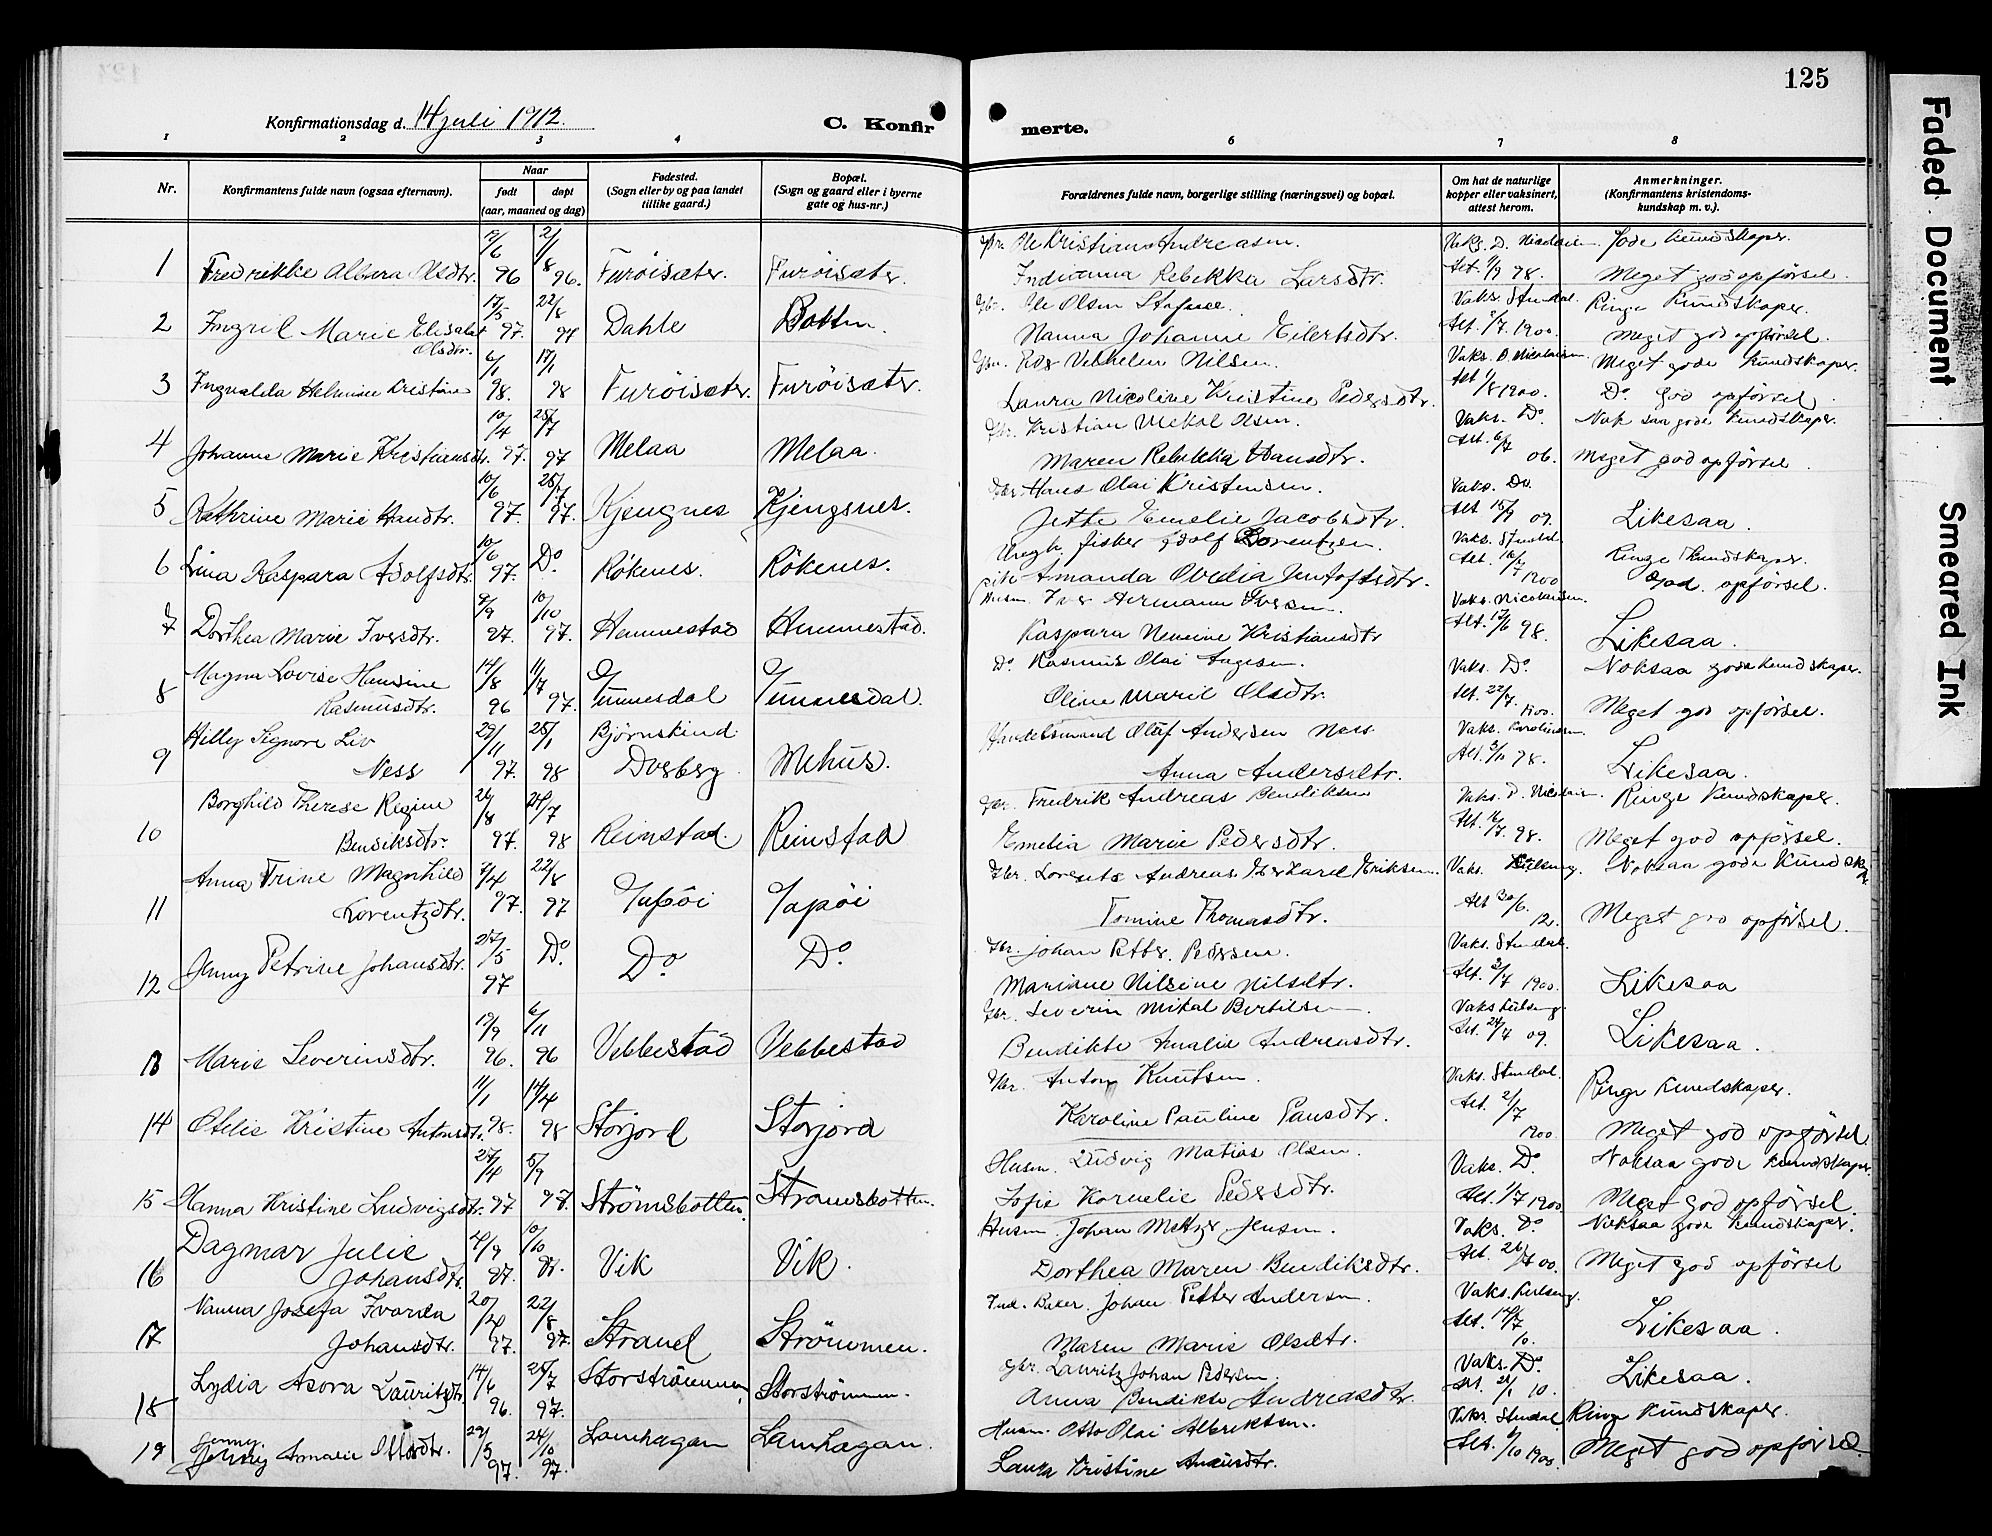 125
Konfirmationsdag d. 14 juli 1912.
C. Konfirmerte.
1 2 3 4 6 7 8
Nr.
Konfirmantens fulde navn (ogsaa efternavn).
Naar
født
døpt
(aar, maaned og dag)
Fødested.
(Sogn eller by og paa landet
tillike gaard.)
Bopæl.
(Sogn og gaard eller i byerne
gate og hus-nr.)
Forældrenes fulde navn, borgerlige stilling (næringsvei) og bopæl.
Om hat de naturlige
kopper eller vaksinert,
attest herom.
Anmerkninger.
(Konfirmantens kristendoms-
kundskap m. v.).
1 Fredrikke Albera Olsdtr. 96 96. Furöisæter. Furöisæter.
Ole Kristian Andreasen.
Indianna Rebekka Larsdtr.
Att. 1/9 98.
Gode kundskaper.
Meget god opförsel.
2 Ingril Marie Elisabet Olsdtr. 17/5 97. 22/8 97 Dahle Botten.
Ole Olsen
Nanna Johanne Eilertsdtr.
Vaks. Stendal. Att. 1900.
Ringe Kundskaper.
Meget god opförsel.
3 Ingvalda Helmine Kristine 6/1 98. 17/1 98 Furöisæter. Furöisæter.
Nilsen.
Laura Nicoline Kristine Pedersdtr.
Att. 1/8 1900.
Meget gode kundskaper.
Do. God opförsel
4 Johanne Marie Kristiansdtr. 10/4 97. 25/7 97 Melaa Melaa.
Kristian Mekal Olsen.
Maren Rebekka Hansdtr.
Vaks. Do Att. 6/7 06.
Nok saa gode Kundskaper.
Meget god opförsel.
5 Kathrine Marie Handtr. 10/6 97. 25/7 97. Kjengnes Kjengsnes.
Hans Olai Kristensen.
Jette Emelie Jacobsdtr.
Vaks. Do. Att. 09.
Likesaa.
6 Lina Kaspara Adolfsdtr. 10/6 97. Do. Rökenes. Rökenes.
fisker Adolf Lorentzen.
Amanda Ovedia Jentoftsdtr.
Vaks. Stendal. Att. 1900
Ringe Kundskaper.
God opförsel.
7 Dorthea Marie Iversdtr. 9/9 97. 10/10 97. Hemmestad Hemmestad.
Iver Hermann Iversen.
Kaspara Kristiansdtr
Vaks. Nicolaisen. Att. 98.
Likesaa.
8 Magna Lovise Hansine Rasmusdtr. 14/8 96 11/7 97. Gunnesdal Gunnesdal.
Do Rasmus Olai Aagesen.
Oline Marie Olsdtr.
Vaks. Do. Att. 22/7 1900.
Noksaa gode kundskaper.
Meget god opförsel.
9 Hilly Signore Liv Ness 29/11 97. 25/1 98 Björnskind Dverberg Mehus.
Handelsmand Olaf Andersen Ness.
Anna Andersdtr.
Likesaa.
10 Borghild Therese Regine Bendiksdtr. 26/8 97. 24/7 98 Reinstad. Reinstad
Fredrik Andreas Bendiksen
Emelia Marie Pedersdtr.
Att. 16/7 98.
Ringe Kundskaper.
Meget god opförsel.
11 Anna Trine Magnhild Lorentzdtr. 7/4 97. 22/8 97 Gapöi Gapöi
Gbr. Andreas Karel Eriksen.
Tomine Thomasdtr.
Att 30/6. 12.
Noksaa gode Kundsk
Meget god opförsel.
12 Jenny Petrine Johansdtr. 27/5 97 Do. Do Do
Gbr. Johan Petter Pedersen.
Mariane Nilsine Nilsdtr.
Vaks. Stendal. Att. 3/7 1900.
Likesaa
13 Marie Severinsdtr. 19/9 96. 6/11 96 Vebbestad Vebbestad
Gbr. Severin Mikal Bertilsen.
Bendikte Amalie Andreasdtr.
Att. 24/7 09.
Likesaa.
14 Otelie Kristine Antonsdtr. 11/1 98. 14/4 98 Storjord Storjord
Gbr. Anton Knutsen.
Karoline Pauline Paulsdtr.
Vaks. Stendal. Att. 2/7 1900.
Ringe Kundskaper.
Meget god opförsel
15 Hanna Kristine Ludvigsdtr. 27/4 97 5/9 97. Strömsbotten, Strömsbotten.
Husm. Ludvig Matias Olsen.
Sofie Kornelie Pedersdtr.
Vaks. Do Att. 1/7 1900
Noksaa gode kundskaper.
Meget god opförsel.
16 Dagmar Julie Johansdtr. 4/9 97. 10/10 97. Vik Vik.
Husm. Johan Metzer Jensen.
Dorthea Maren Bendiksdtr.
Vaks. Do Att. 26/7 00.
Noksaa gode kundskaper.
Meget god opförsel
17 Nanna Josefa Ivarda Johansdtr. 97. 22/8 97. Strand Strömmen.
Johan Petter Andersen.
Maren Marie Olsdtr.
Att. 14/7 10.
Likesaa.
18 Lydia Asora Lauritzdtr. 14/6 96. 25/7 97. Storströmmen, Storströmmen.
Gbr. Lauritz Johan Pedersen.
Anna Bendikte Andreasdtr.
Vaks. Do. Att. 10.
Likesaa.
19 Jenny Amalie Ottosdtr. 29/5 97. 24/10 97. Lamhagan Lamhagan.
Husm. Otto Olai Albriktsen.
Laura Kristine
Vaks. Stendal Att. 1900.
Ringe Kundskaper.
Meget god opförsel
Faded Document
Smeared Ink